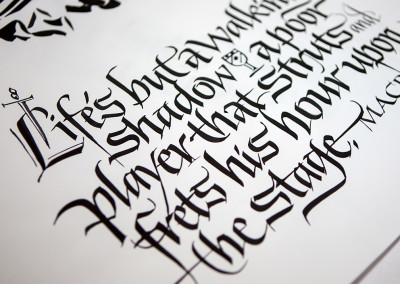 Life's but a walkin
shadow a poor
player that struts and
frets his hour upon
the stage. MACB